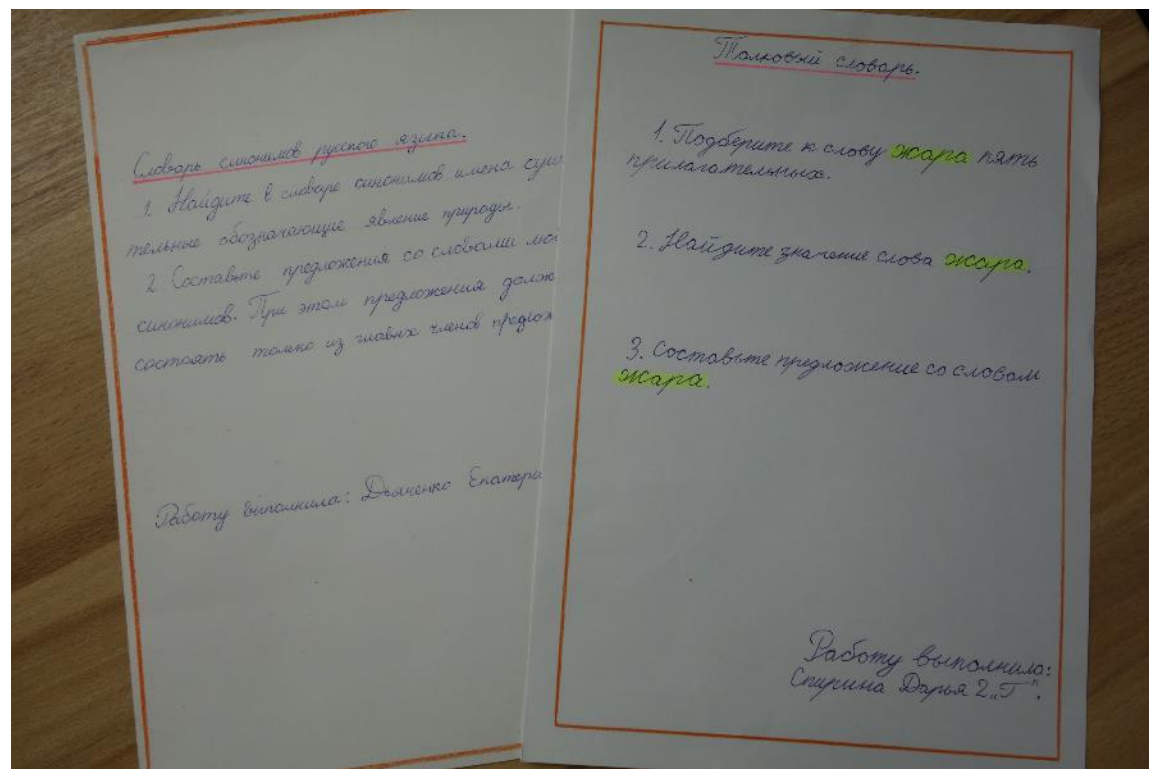 Словарь синонимов русского языка.
1. Найдите в словаре синонимов имена сущ
тельные обозначающие явление природы.
2. Составьте предложения со словами
синонимов. При этом предложения долж
состоять только из главных членов предлож
Работу выполнила: Дьяченко Екатери
Толковый словарь.
1. Подберите к слову жара пять
прилагательных.
2. Найдите значение слова жара.
3. Составьте предложение со словом
жара.
Работу выполнила:
Спирина Дарья 2 „Г".